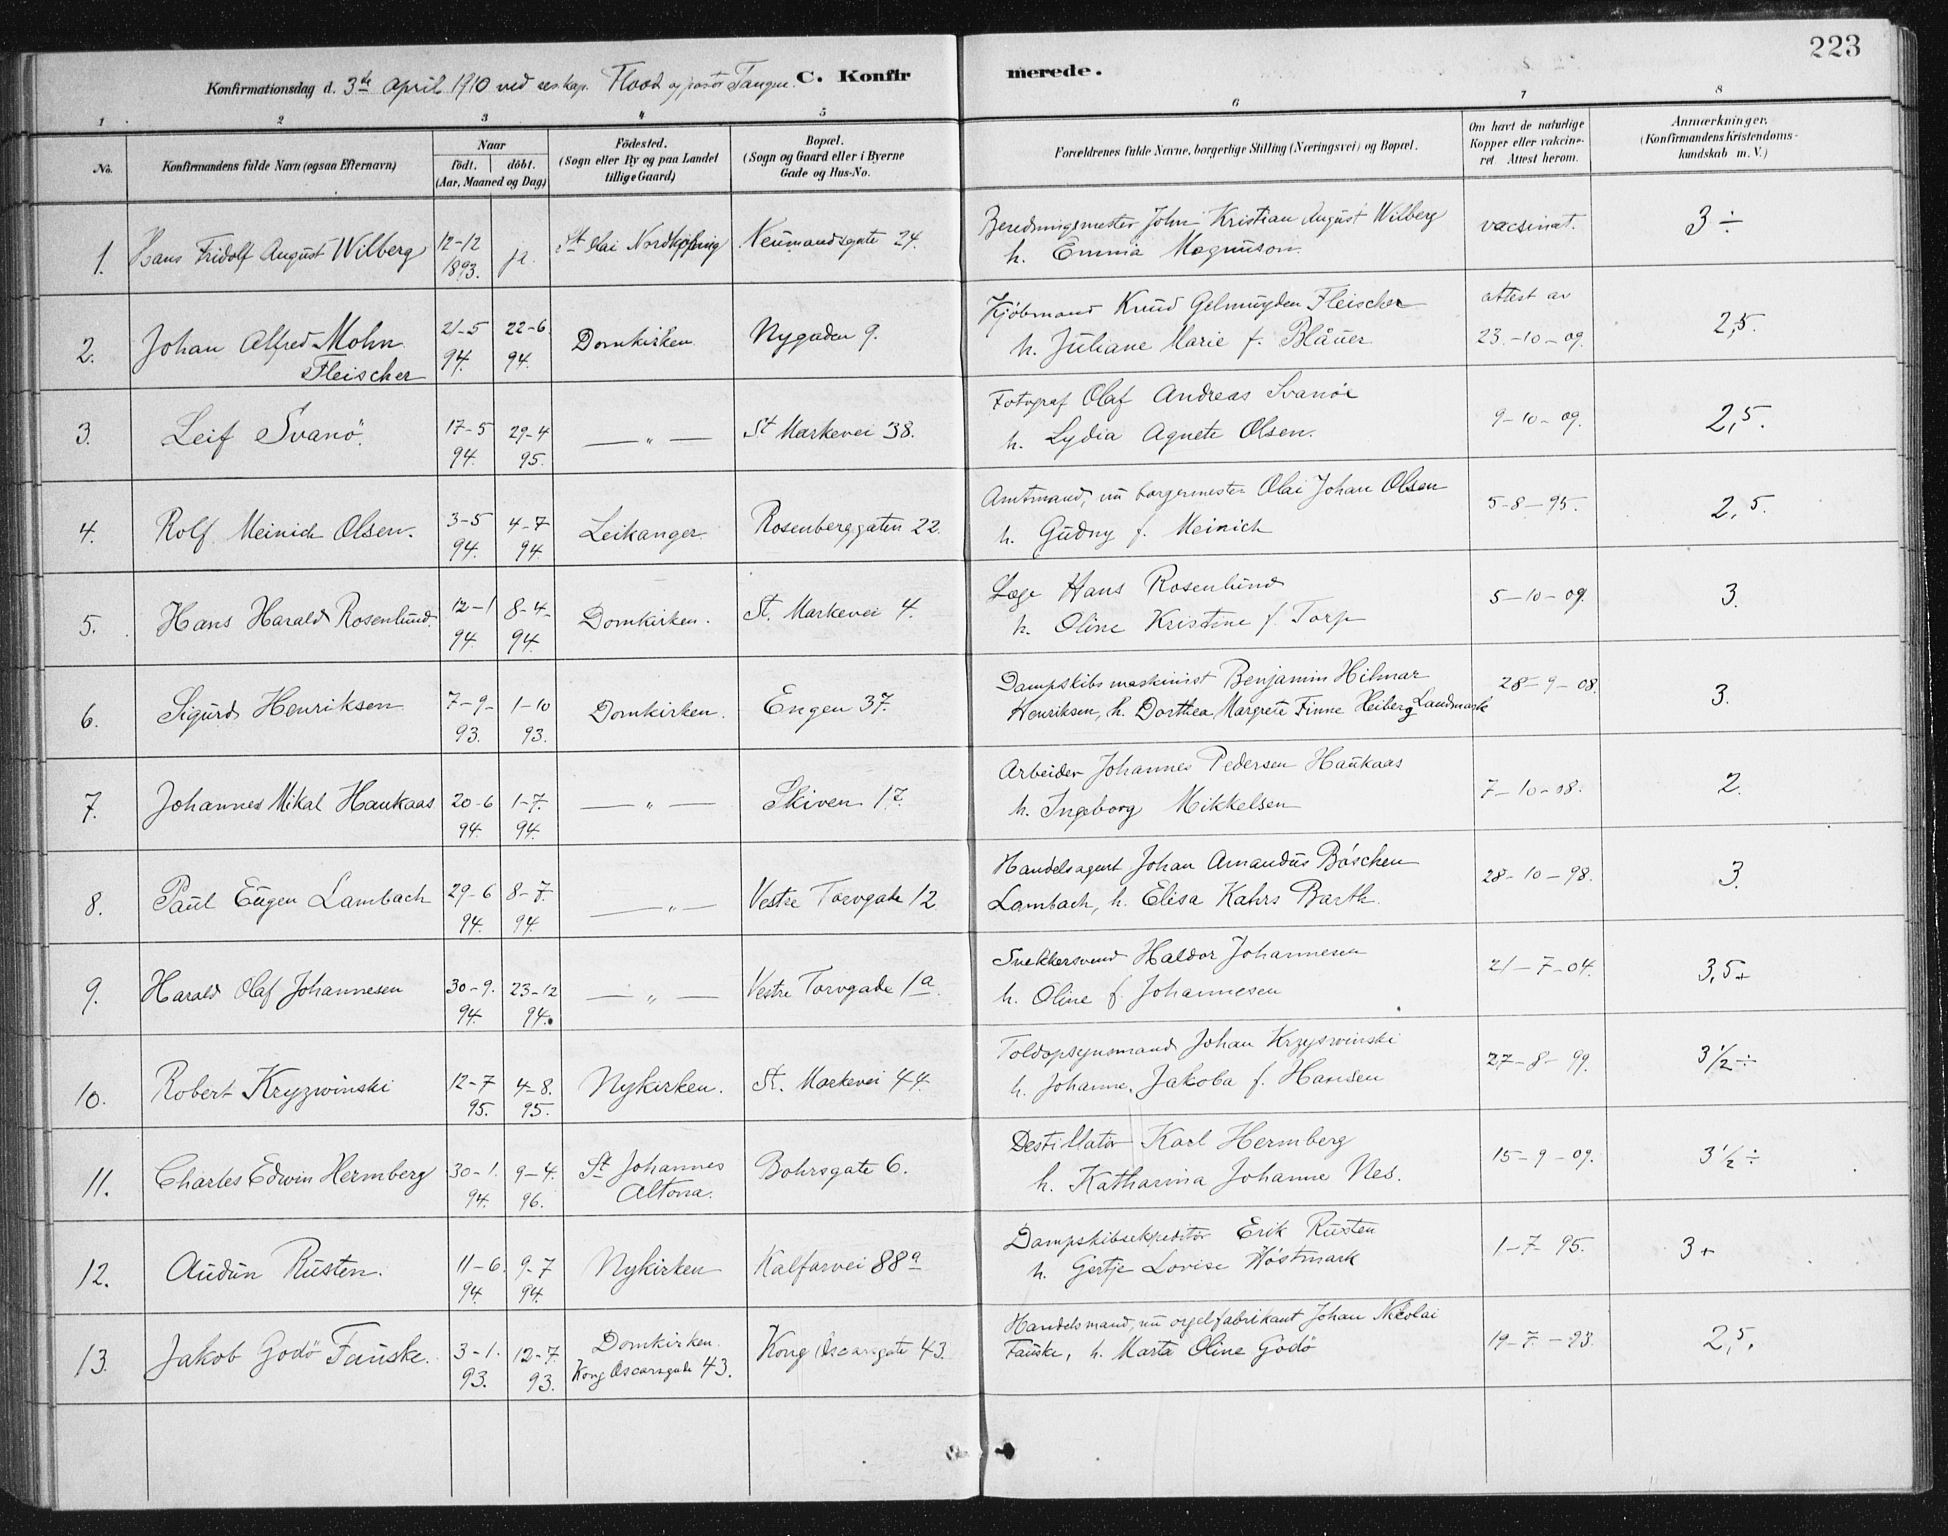 223
Konfirmationsdag d. 3die april 1910 ved reskap. Flood og pastor Tangen. C. Konfirmerede.
1 2 3 4 5 6 7 8
No.
Konfirmandens fulde Navn (ogsaa Efternavn)
Naar
födt. döbt.
(Aar, Maaned og Dag)
Födested.
(Sogn eller By og paa Landet
tillige Gaard)
Bopæl.
(Sogn og Gaard eller i Byerne
Gade og Hus-No.
Forældrenes fulde Navne, borgerlige Stilling (Næringsvei) og Bopæl.
Om havt de naturlige
Kopper eller vakcine-
ret. Attest herom.
Anmærkninger.
(Konfirmandens Kristendoms-
kundskab m. V.)
1. Hans Fridolf August Wilberg 12-12 1893. ja. St. Olai Nordkjøping Neumandsgate 24.
Beredningsmester John Kristian August Wilberg
h. Emmia Magnuson. vacsinat. 3 ÷
2. Johan Alfred Mohn
Fleischer 21-5 94. 22-6 94. Domkirken Nygaden 9.
Kjöbmand Knud Gelmuyden Fleischer
h. Juliane Marie f. Blåuer attest av 23-10-09. 2,5.
3. Leif Svanö. 17-5 94. 29-4 95. — " — St. Markevei 38.
Fotograf Olaf Andreas Svanöe
h. Lydia Agnete Olsen. 9-10-09. 2,5.
4. Rolf Meinich Olsen. 3-5 94. 4-7 94. Leikanger Rosenberggaten 22.
Amtmand, nu borgermester Olai Johan Olsen
h. Gudny f. Meinich 5-8-95. 2,5.
5. Hans Harald Rosenlund 12-1 94. 8-4 94. Domkirken. St. Markevei 4.
Læge Hans Rosenlund
h. Oline Kristine f. Torp 5-10-09. 3.
6. Sigurd Henriksen 7-9 93. 1-10 93. Domkirken. Engen 37.
Dampskibsmaskinist Benjamin Hilmar
Henriksen, h. Dorthea Margrete Finne Heiberg Landmark 28-9-08. 3.
7. Johannes Mikal Haukaas 20-6 94. 1-7. 94. — " — Skiven 17.
Arbeider Johannes Pedersen Haukaas
h. Ingeborg Mikkelsen 7-10-08. 2.
8. Paul Eugen Lambach 29-6 94. 8-7. 94. — " — Vestre Torvgate 12
Handelsagent Johan Amandus Böschen
Lambach, h. Elisa Kahrs Barth. 28-10-98. 3.
9. Harald Olaf Johannesen 30-9. 94. 23-12 94. — " — Vestre Torvgade 1a.
Snekkersvend Haldor Johannesen
h. Oline f. Johannesen 21-7-04. 3,5+
10. Robert Kryzwinski 12-7 95. 4-8. 95. Nykirken. St. Markevei 44.
Toldopsynsmand Johan Krzyswinski
h. Johanne Jakoba f. Hansen 27-8-99. 3½ ÷
11. Charles Edwin Hermberg 30-1. 94. 9-4. 96. St. Johannes
Altona. Bohrsgate 6.
Destillatör Karl Hermberg
h. Katharina Johanne Nes. 15-9-09. 3½ ÷
12. Audun Rusten. 11-6. 94. 9-7 94. Nykirken Kalfarvei 88a
Dampskibsekspeditör Erik Rusten
h. Gertje Lovise Höstmark 1-7-95. 3+
13. Jakob Godö Fauske. 3-1. 93. 12-7. 93. Domkirken.
Kong Oscarsgade 43. Kong Oscarsgate 43.
Handelsmand, nu orgelfabrikant Johan Nicolai
Fauske, h. Marta Oline Godö 19-7-93. 2,5.